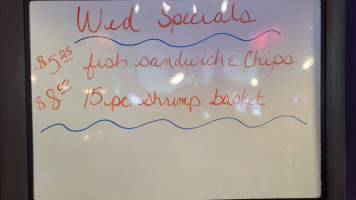 Wed Specials
$5.25 fish sandwich & Chips
$8.00 15 pc shrimp basket